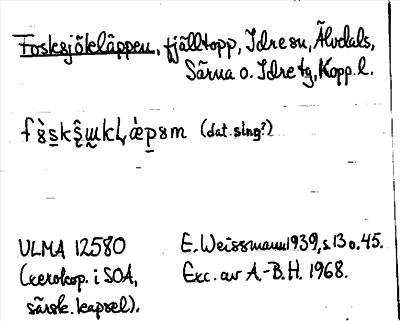 Fosksjökläppen, fjälltopp, Idre sn, Älvdals,
Särna o. Idre tg, Kopp. l.
(dat. sing?)
ULMA 12580
E. Weissmann 1939, s. 13 o. 45.
(xerokop. i SOA,
Exc. av A.-B. H. 1968.
särsk. kapsel).